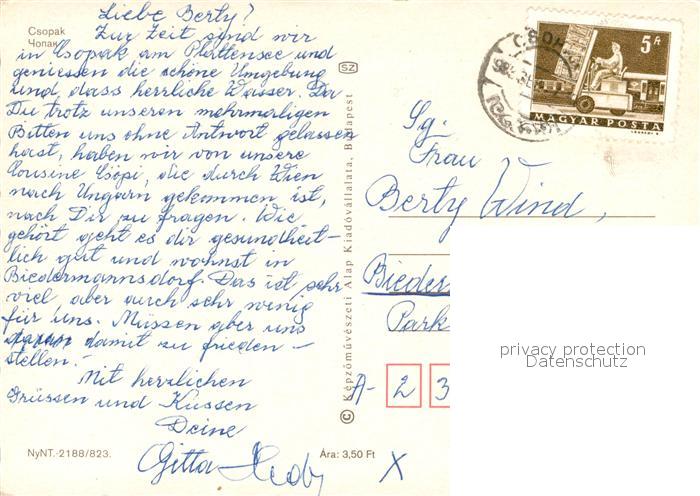 Csopak
Чопак
Liebe Berty!
Zur Zeit sind wir
in Csopak am Plattensee und
geniessen die schöne Umgebung
und dass herrliche Wasser. Da
Du trotz unseren mehrmaligen
Bitten uns ohne Antwort gelassen
hast, haben wir von unsere
Cousine Csöpi, die durch Wien
nach Ungarn gekommen ist,
nach Dir zu fragen. Wie
gehört geht es dir gesundheit-
lich gut und wohnst in
Biedermannsdorf. Das ist sehr
viel, aber auch sehr wenig
für uns. Müssen aber uns
damit zu frieden-
stellen.
Mit herzlichen
Grüssen und Küssen
Deine
Gitta
NyNT.-2188/823.
Ára: 3,50 Ft
SZ
© Képzőművészeti Alap Kiadóvállalata, Budapest
CSOPAK
5 Ft
MAGYAR POSTA
Sg.
Frau
Berty Wind,
Bieder
Park
A- 2 3
X
privacy protection
Datenschutz